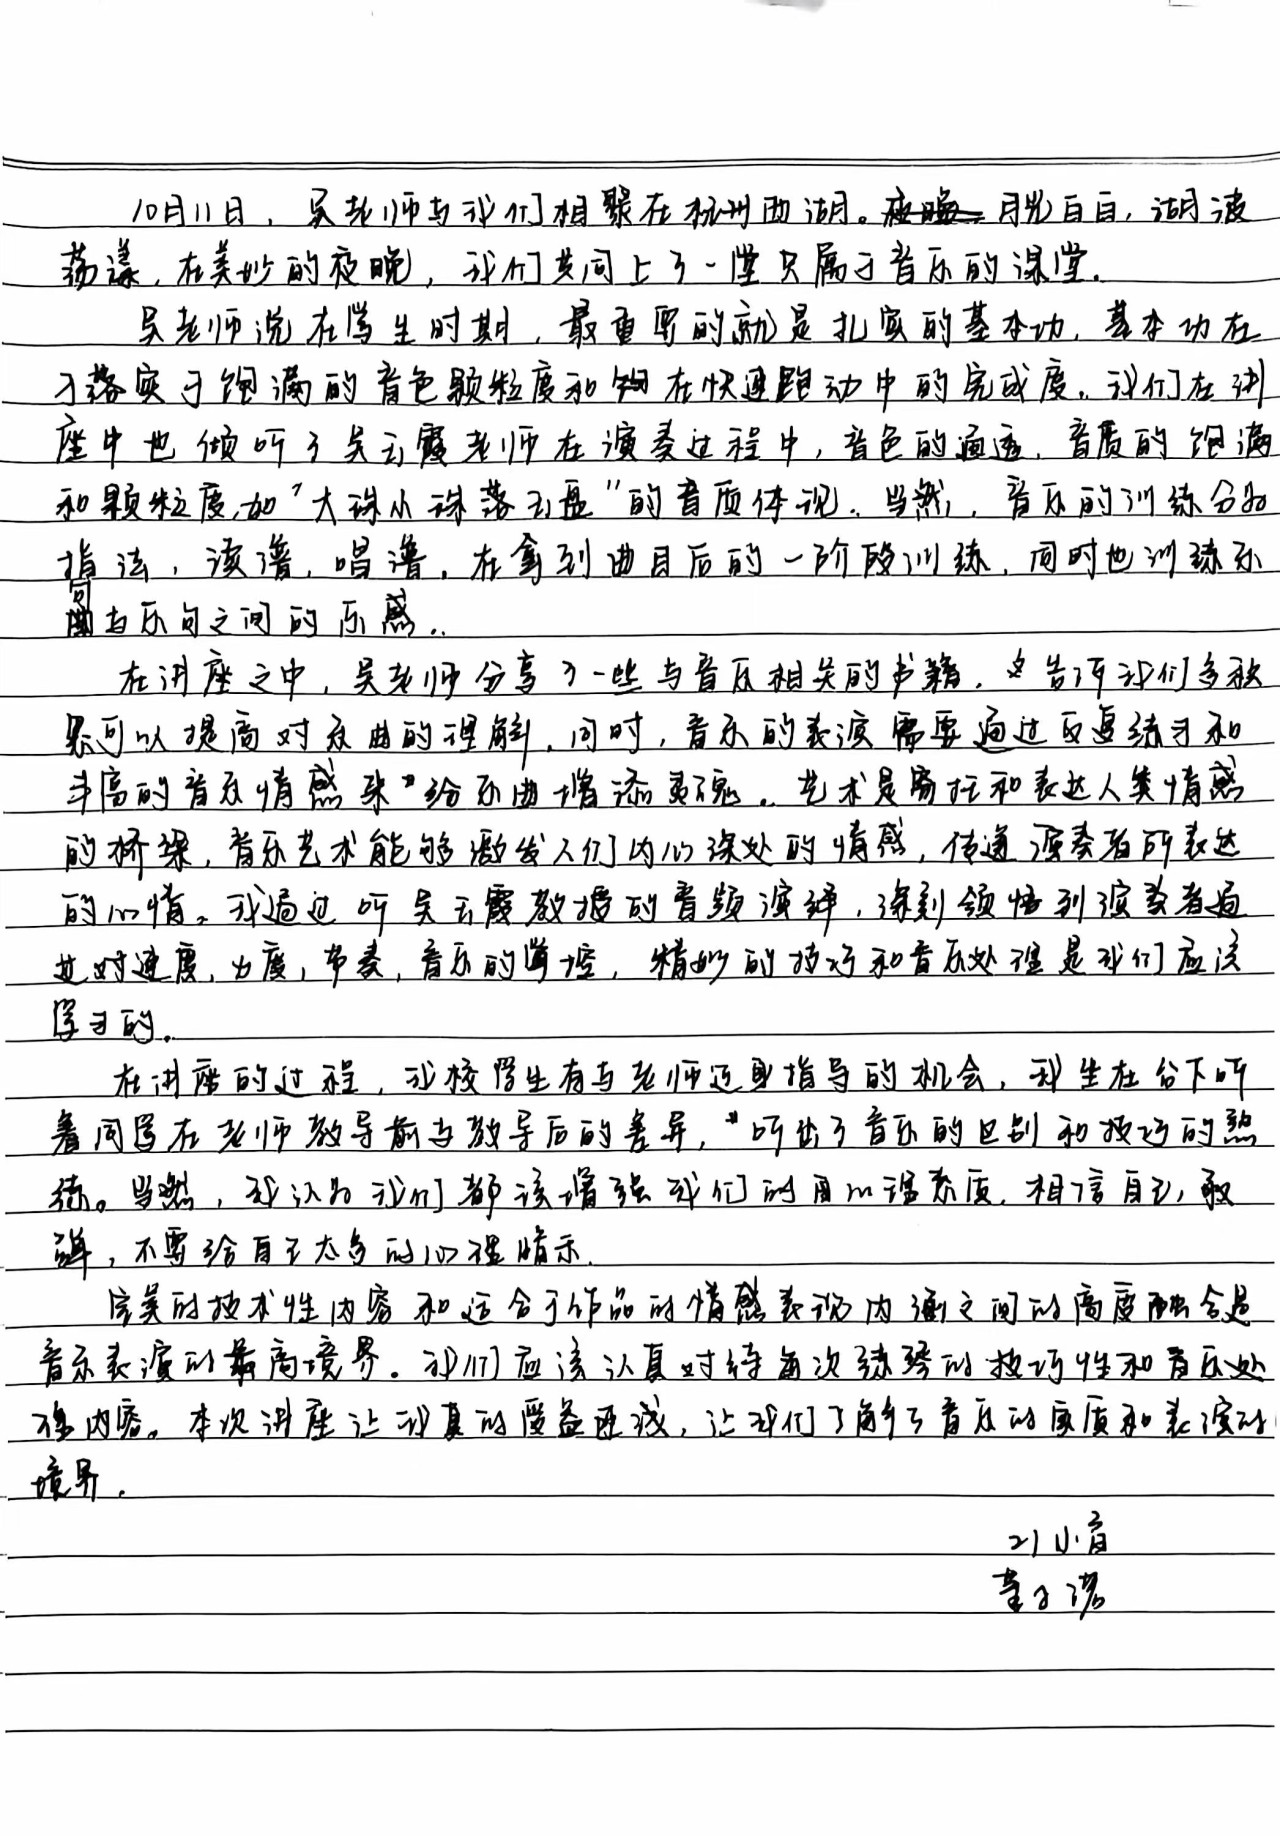 10月11日，吴老师与我们相聚在杭州西湖。月光白白，湖波
荡漾，在美妙的夜晚，我们共同上了一堂只属于音乐的课堂。
吴老师说在学生时期，最重要的就是扎实的基本功，基本功在
于落实于饱满的音色颗粒度和在快速跑动中的完成度。我们在讲
座中也倾听了吴云霞老师在演奏过程中，音色的通透，音质的饱满
和颗粒度，如"大珠小珠落玉盘"的音质体现。当然，音乐的训练分为
指法，读谱，唱谱。在拿到曲目后的一阶段训练，同时也训练乐
句与乐句之间的乐感。
在讲座之中，吴老师分享了一些与音乐相关的书籍，告诉我们多积
累可以提高对乐曲的理解，同时，音乐的表演需要通过反复练习和
丰富的音乐情感来给乐曲增添灵魂。艺术是寄托和表达人类情感
的桥梁，音乐艺术能够激发人们内心深处的情感，传递演奏者所表达
的心情。我通过听吴云霞教授的音频演绎，深刻领悟到演奏者通
过对速度，力度，节奏，音乐的掌控，精妙的技巧和音乐处理是我们应该
学习的。
在讲座的过程，我校学生有与老师近身指导的机会，我坐在台下听
着同学在老师教导前与教导后的差异，听出了音乐的区别和技巧的熟
练。当然，我认为我们都该增强我们的心理素质，相信自己，敢
弹，不要给自己太多的心理暗示。
完美的技术性内容和适合于作品的情感表现内涵之间的高度融合是
音乐表演的最高境界。我们应该认真对待每次练琴的技巧性和音乐处
理内容。本次讲座让我真的受益匪浅，让我们了解了音乐的实质和表演的
境界。
21小音
董子诺